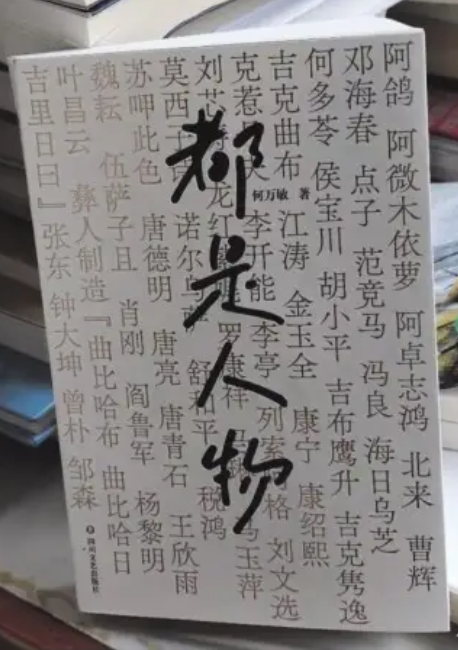 都是人物
何万敏 著
阿鸽 阿微木依萝 阿卓志鸿 北来 曹辉
邓海春 点子 范竞马 冯良 海日乌芝
何多苓 侯宝川 胡小平 吉布鹰升 吉克隽逸
吉克曲布 江涛 金玉全 康宁 康绍熙
克惹 李开能 李亭 列索 格 刘文选
刘芯 龙红 罗康祥 马玉萍
莫西 诺尔乌 舒和平 税鸿
苏呷此色 唐德明 唐亮 唐青石 王欣雨
魏耘 伍萨子且 肖刚 阎鲁军 杨黎明
叶昌云 彝人制造『曲比哈布 曲比哈日
吉里日曰』 张东 钟大坤 曾朴 邹森
四川文艺出版社